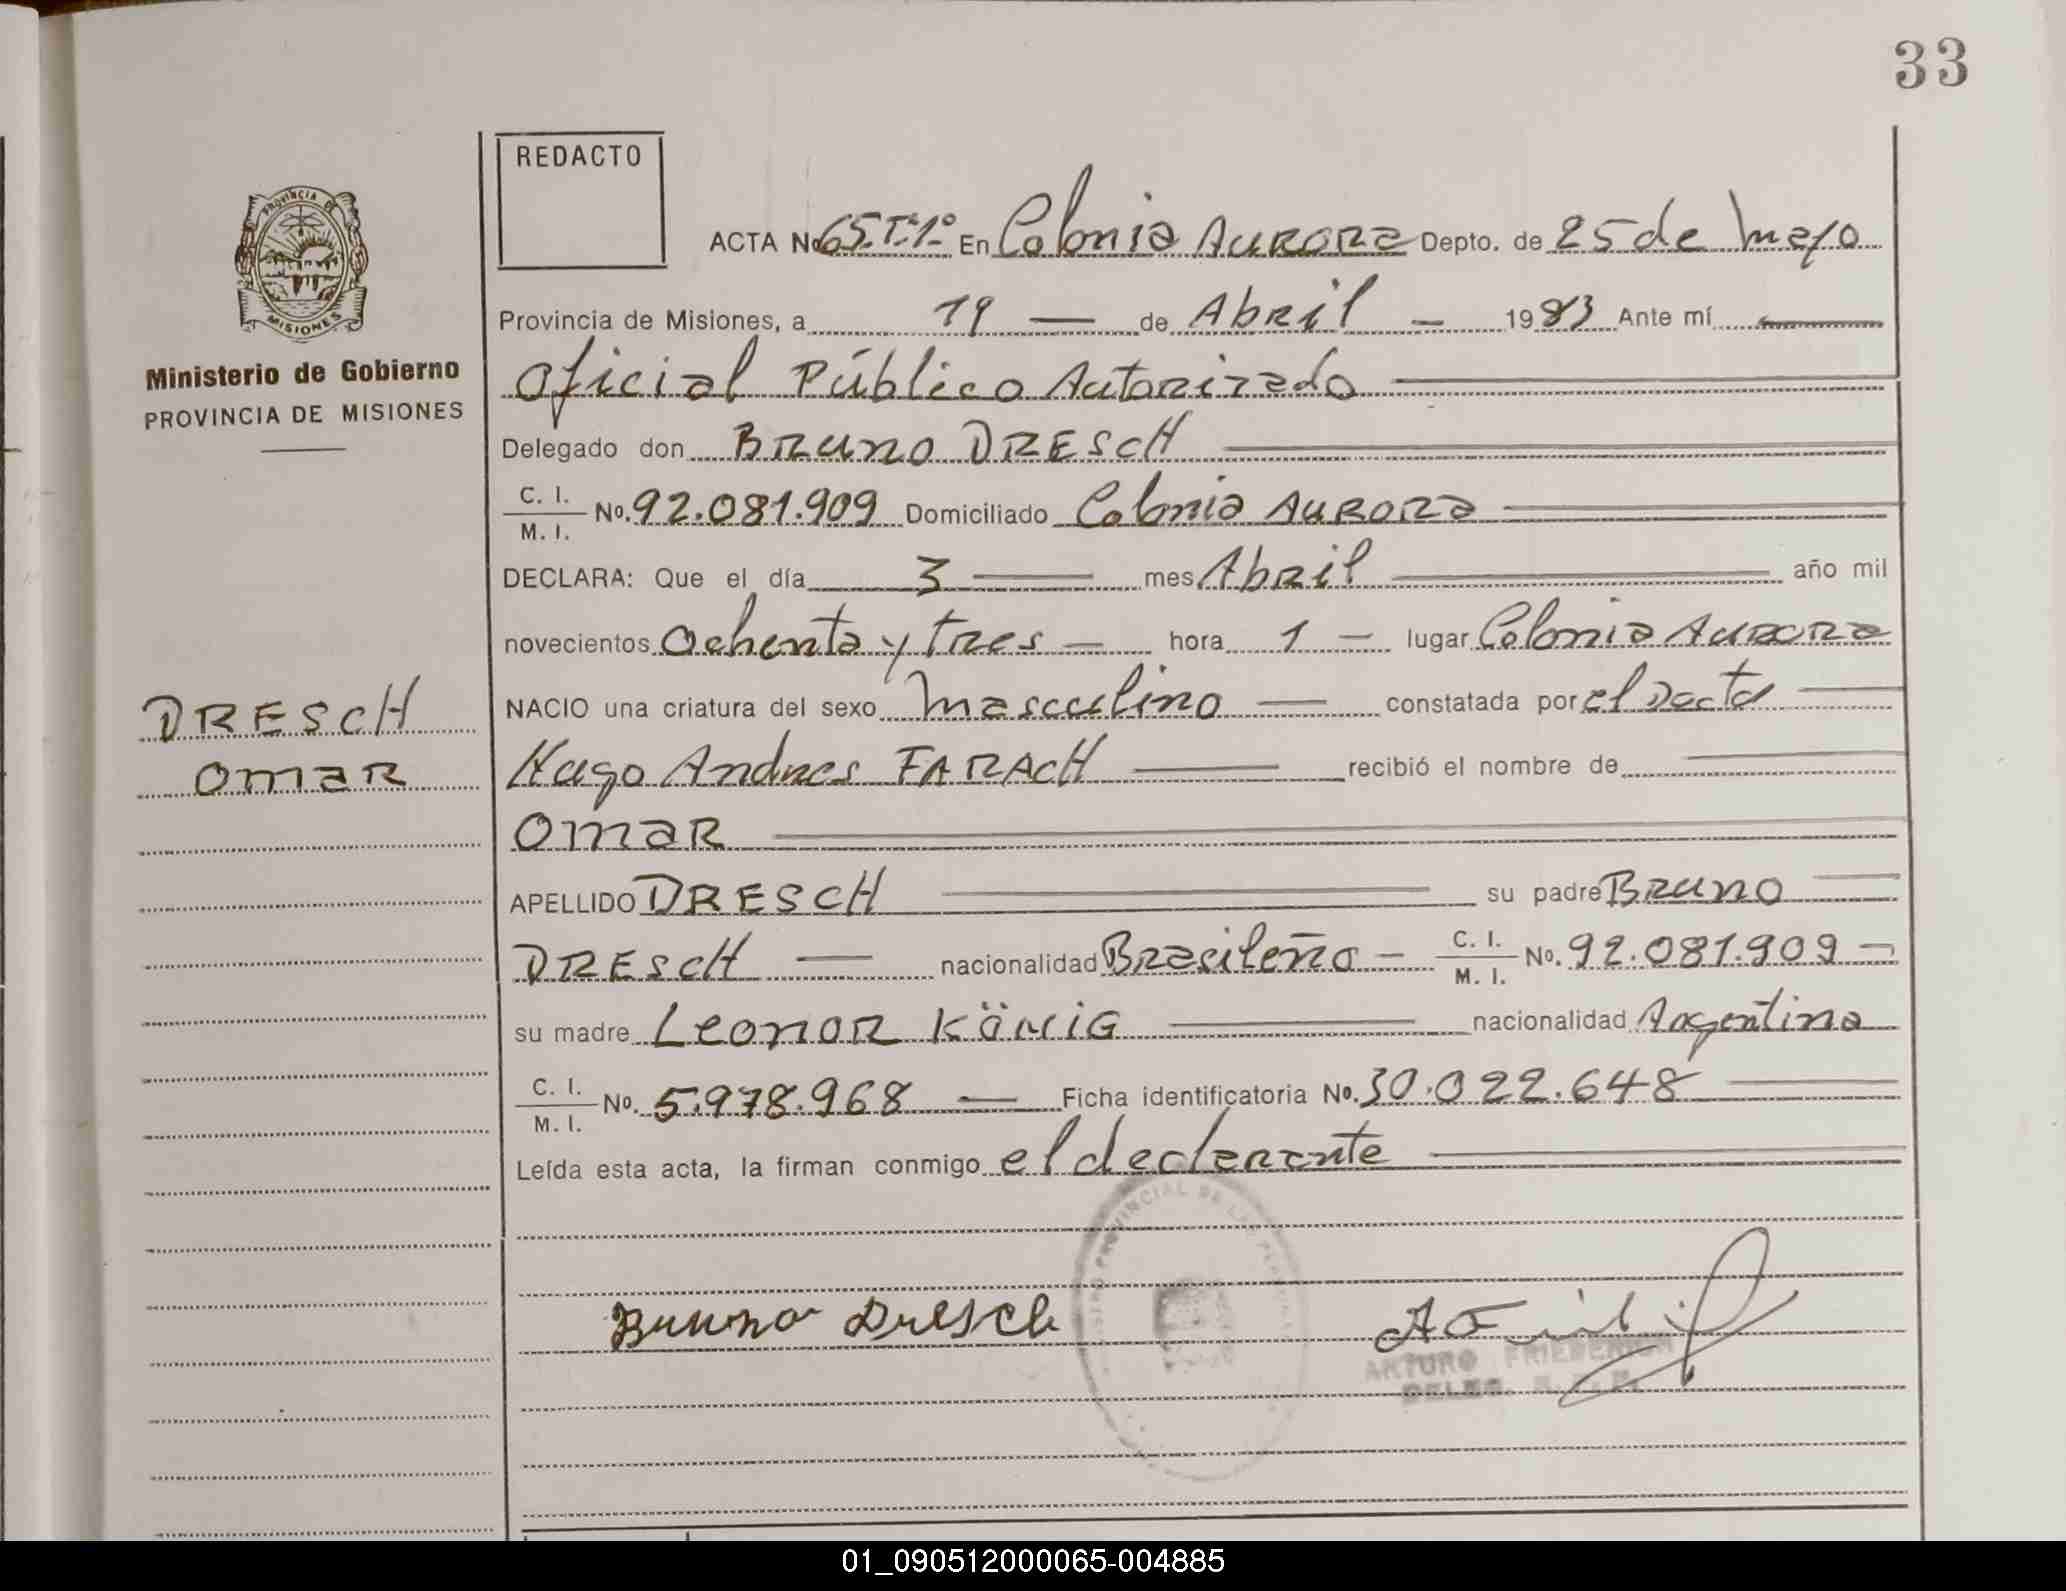 33
REDACTO
PROVINCIA DE
MISIONES
Ministerio de Gobierno
PROVINCIA DE MISIONES
DRESCH
OMAR
ACTA No 65.Tº1º En Colonia Aurora Depto. de 25 de mayo
Provincia de Misiones, a 19 — de Abril — 1983 Ante mí —
Oficial Público Autorizado
Delegado don BRUNO DRESCH
C. I.
M. I. No. 92.081.909 Domiciliado Colonia Aurora
DECLARA: Que el día 3 — mes Abril — año mil
novecientos Ochenta y tres — hora 1 — lugar Colonia Aurora
NACIO una criatura del sexo Masculino — constatada por el Doctor
Hugo Andres FARACH — recibió el nombre de —
OMAR
APELLIDO DRESCH — su padre Bruno
DRESCH — nacionalidad Brasileña — C. I.
M. I. No. 92.081.909 —
su madre Leonor KÖNIG — nacionalidad Argentina
C. I.
M. I. No. 5.978.968 — Ficha identificatoria No. 30.022.648 —
Leída esta acta, la firman conmigo el declarante
PROVINCIAL DE LAS PERSONAS
Bruno Dresch
ARTURO FRIEDERICH
01_090512000065-004885